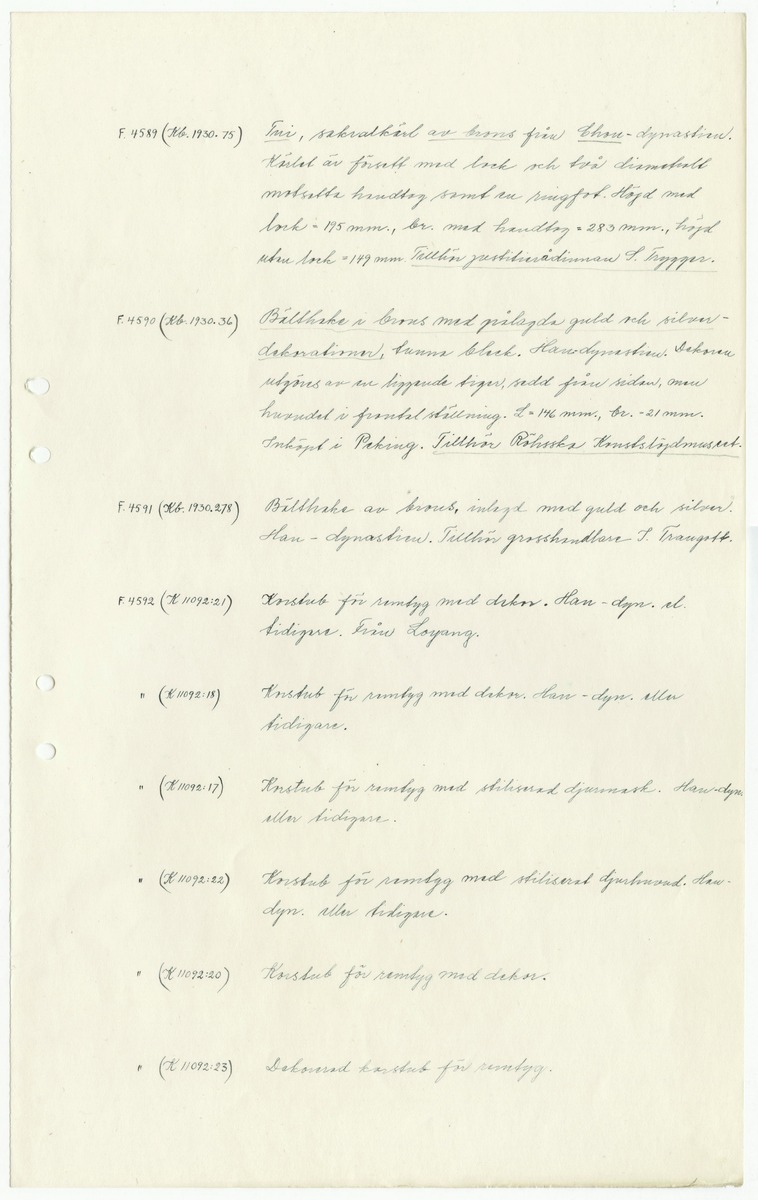 F. 4589 (Kb. 1930. 75) Tui, sakralkärl av brons från Chou-dynastien.
Kärlet är försett med lock och två diametralt
motsatta handtag samt en ringfot. Höjd med
lock = 195 mm., br. med handtag = 283 mm., höjd
utan lock = 149 mm. Tillhör justitierådinnan S. Trygger.
F. 4590 (Kb. 1930. 36) Bälthake i brons med pålagda guld och silver-
dekorationer, tunna bleck. Handynastien. Dekoren
utgöres av en liggande tiger, sedd från sidan, men
huvudet i frontal ställning. L = 146 mm., br. - 21 mm.
Inköpt i Peking. Tillhör Röhsska Konstslöjdmuseet.
F. 4591 (Kb. 1930. 278) Bälthake av brons, inlagd med guld och silver.
Han - dynastien. Tillhör grosshandlare I. Traugott.
F. 4592 (K 11092:21) Korstub för remtyg med dekor. Han - dyn. el.
tidigare. Från Loyang.
" (K 11092:18) Korstub för remtyg med dekor. Han - dyn. eller
tidigare.
" (K 11092:17) Korstub för remtyg med stiliserad djurmask. Han-dyn.
eller tidigare.
" (K 11092:22) Korstub för remtyg med stiliserat djurhuvud. Han-
dyn. eller tidigare.
" (K 11092:20) Korstub för remtyg med dekor.
" (K 11092:23) Dekorerad korstub för remtyg.